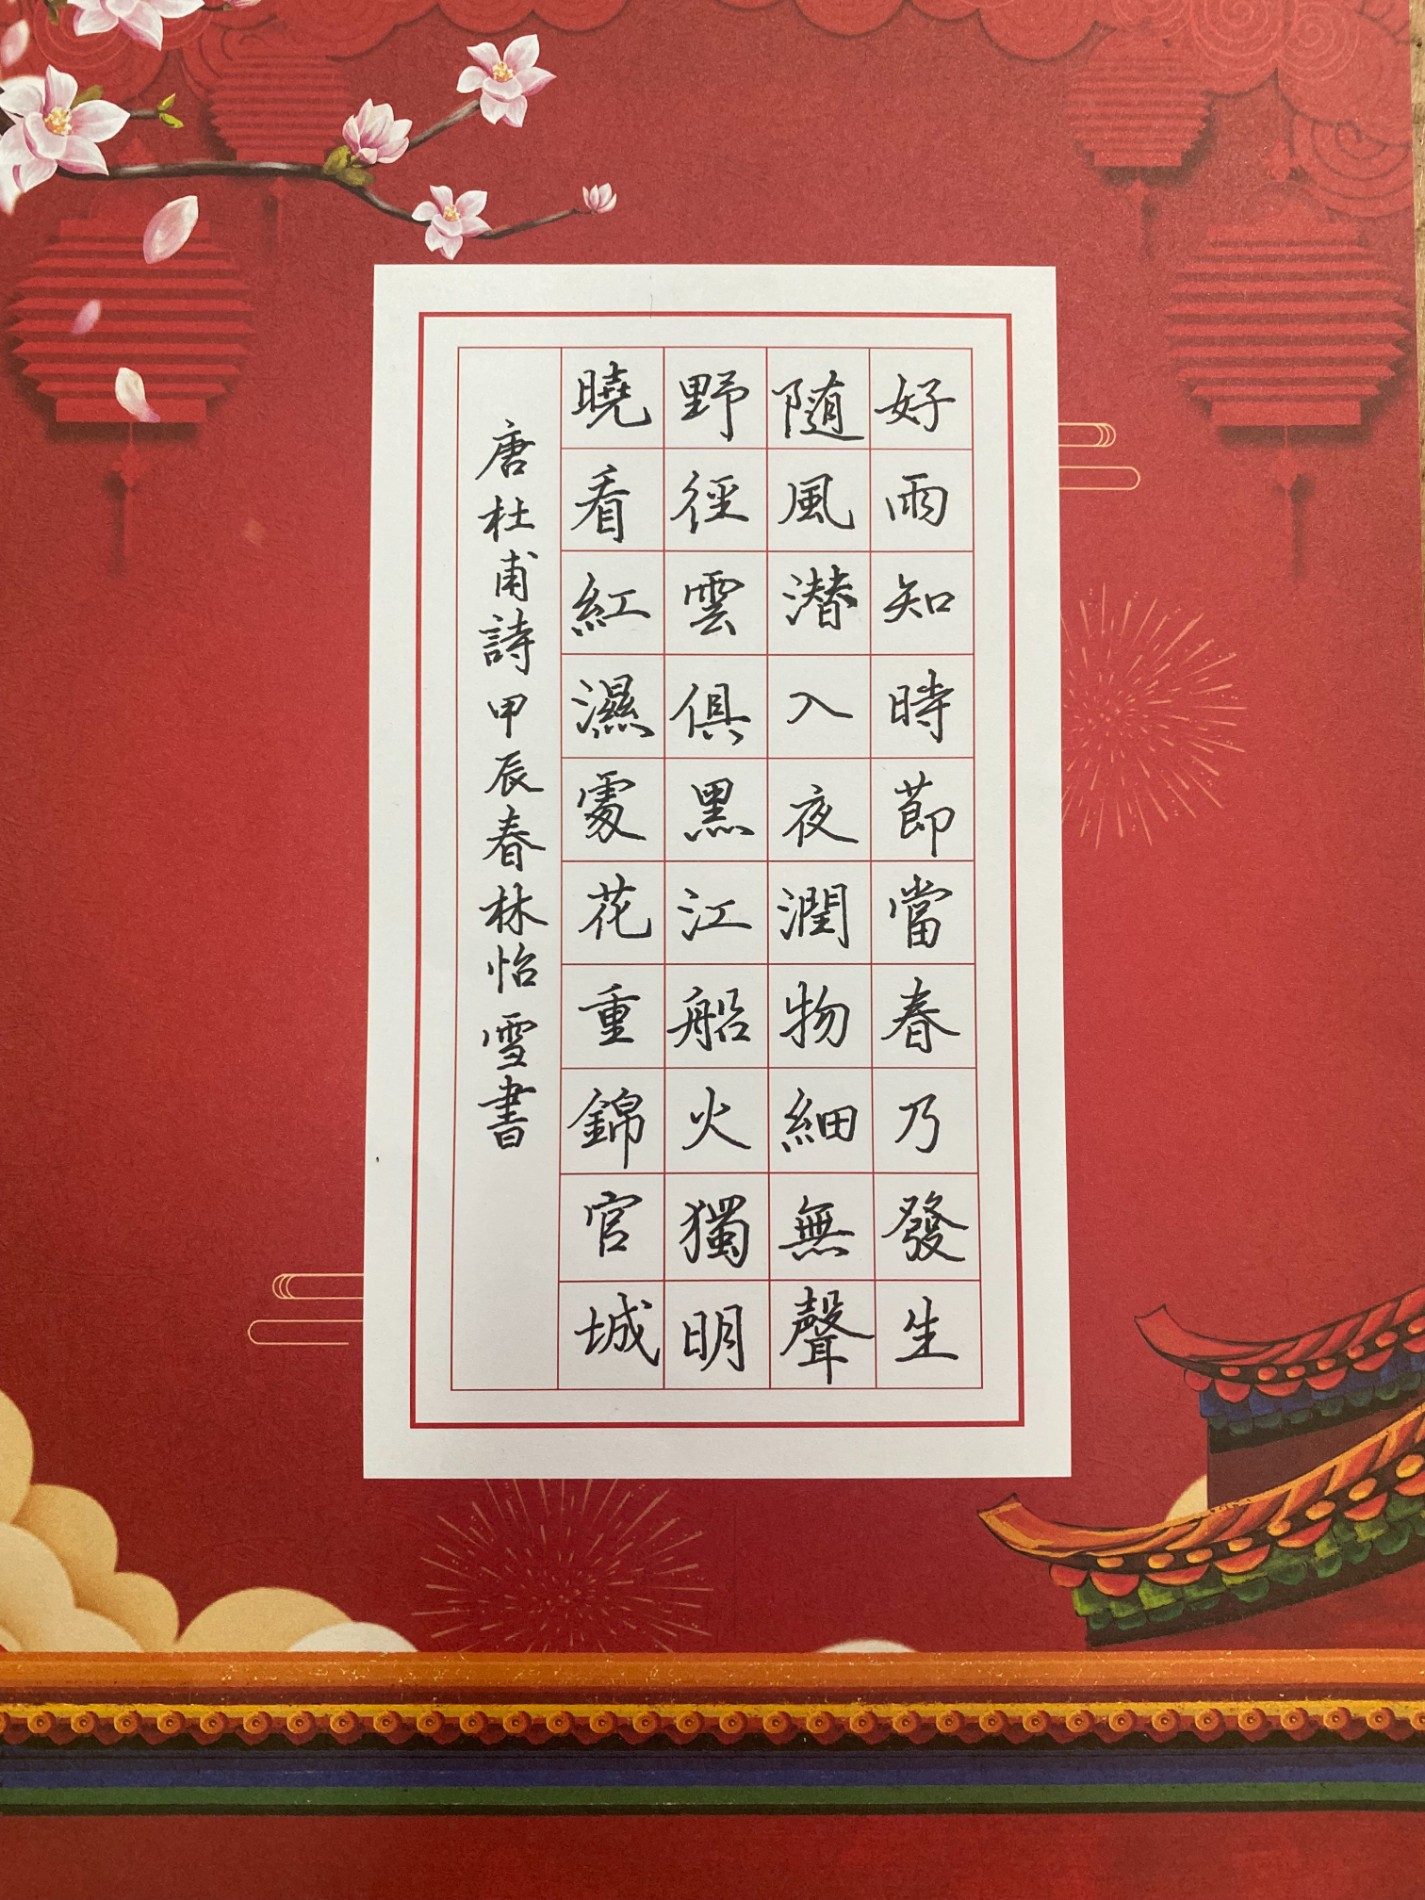 好雨知時節當春乃發生
随風潜入夜潤物細無聲
野徑雲俱黑江船火獨明
曉看紅濕處花重錦官城
唐杜甫詩甲辰春林怡雪書